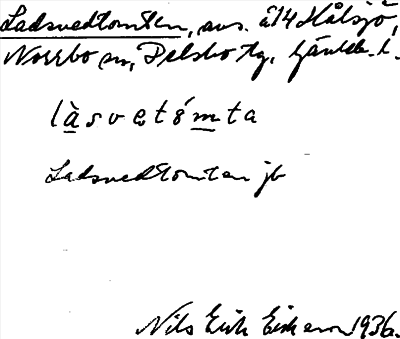 Ladsvedtomten, avs. å 14 Hålsjö,
Norrbo sn, Delsbo tg, Gävleb. l.
làsvetómta
Ladsvedtomten jb
Nils Erik Eriksson 1936.